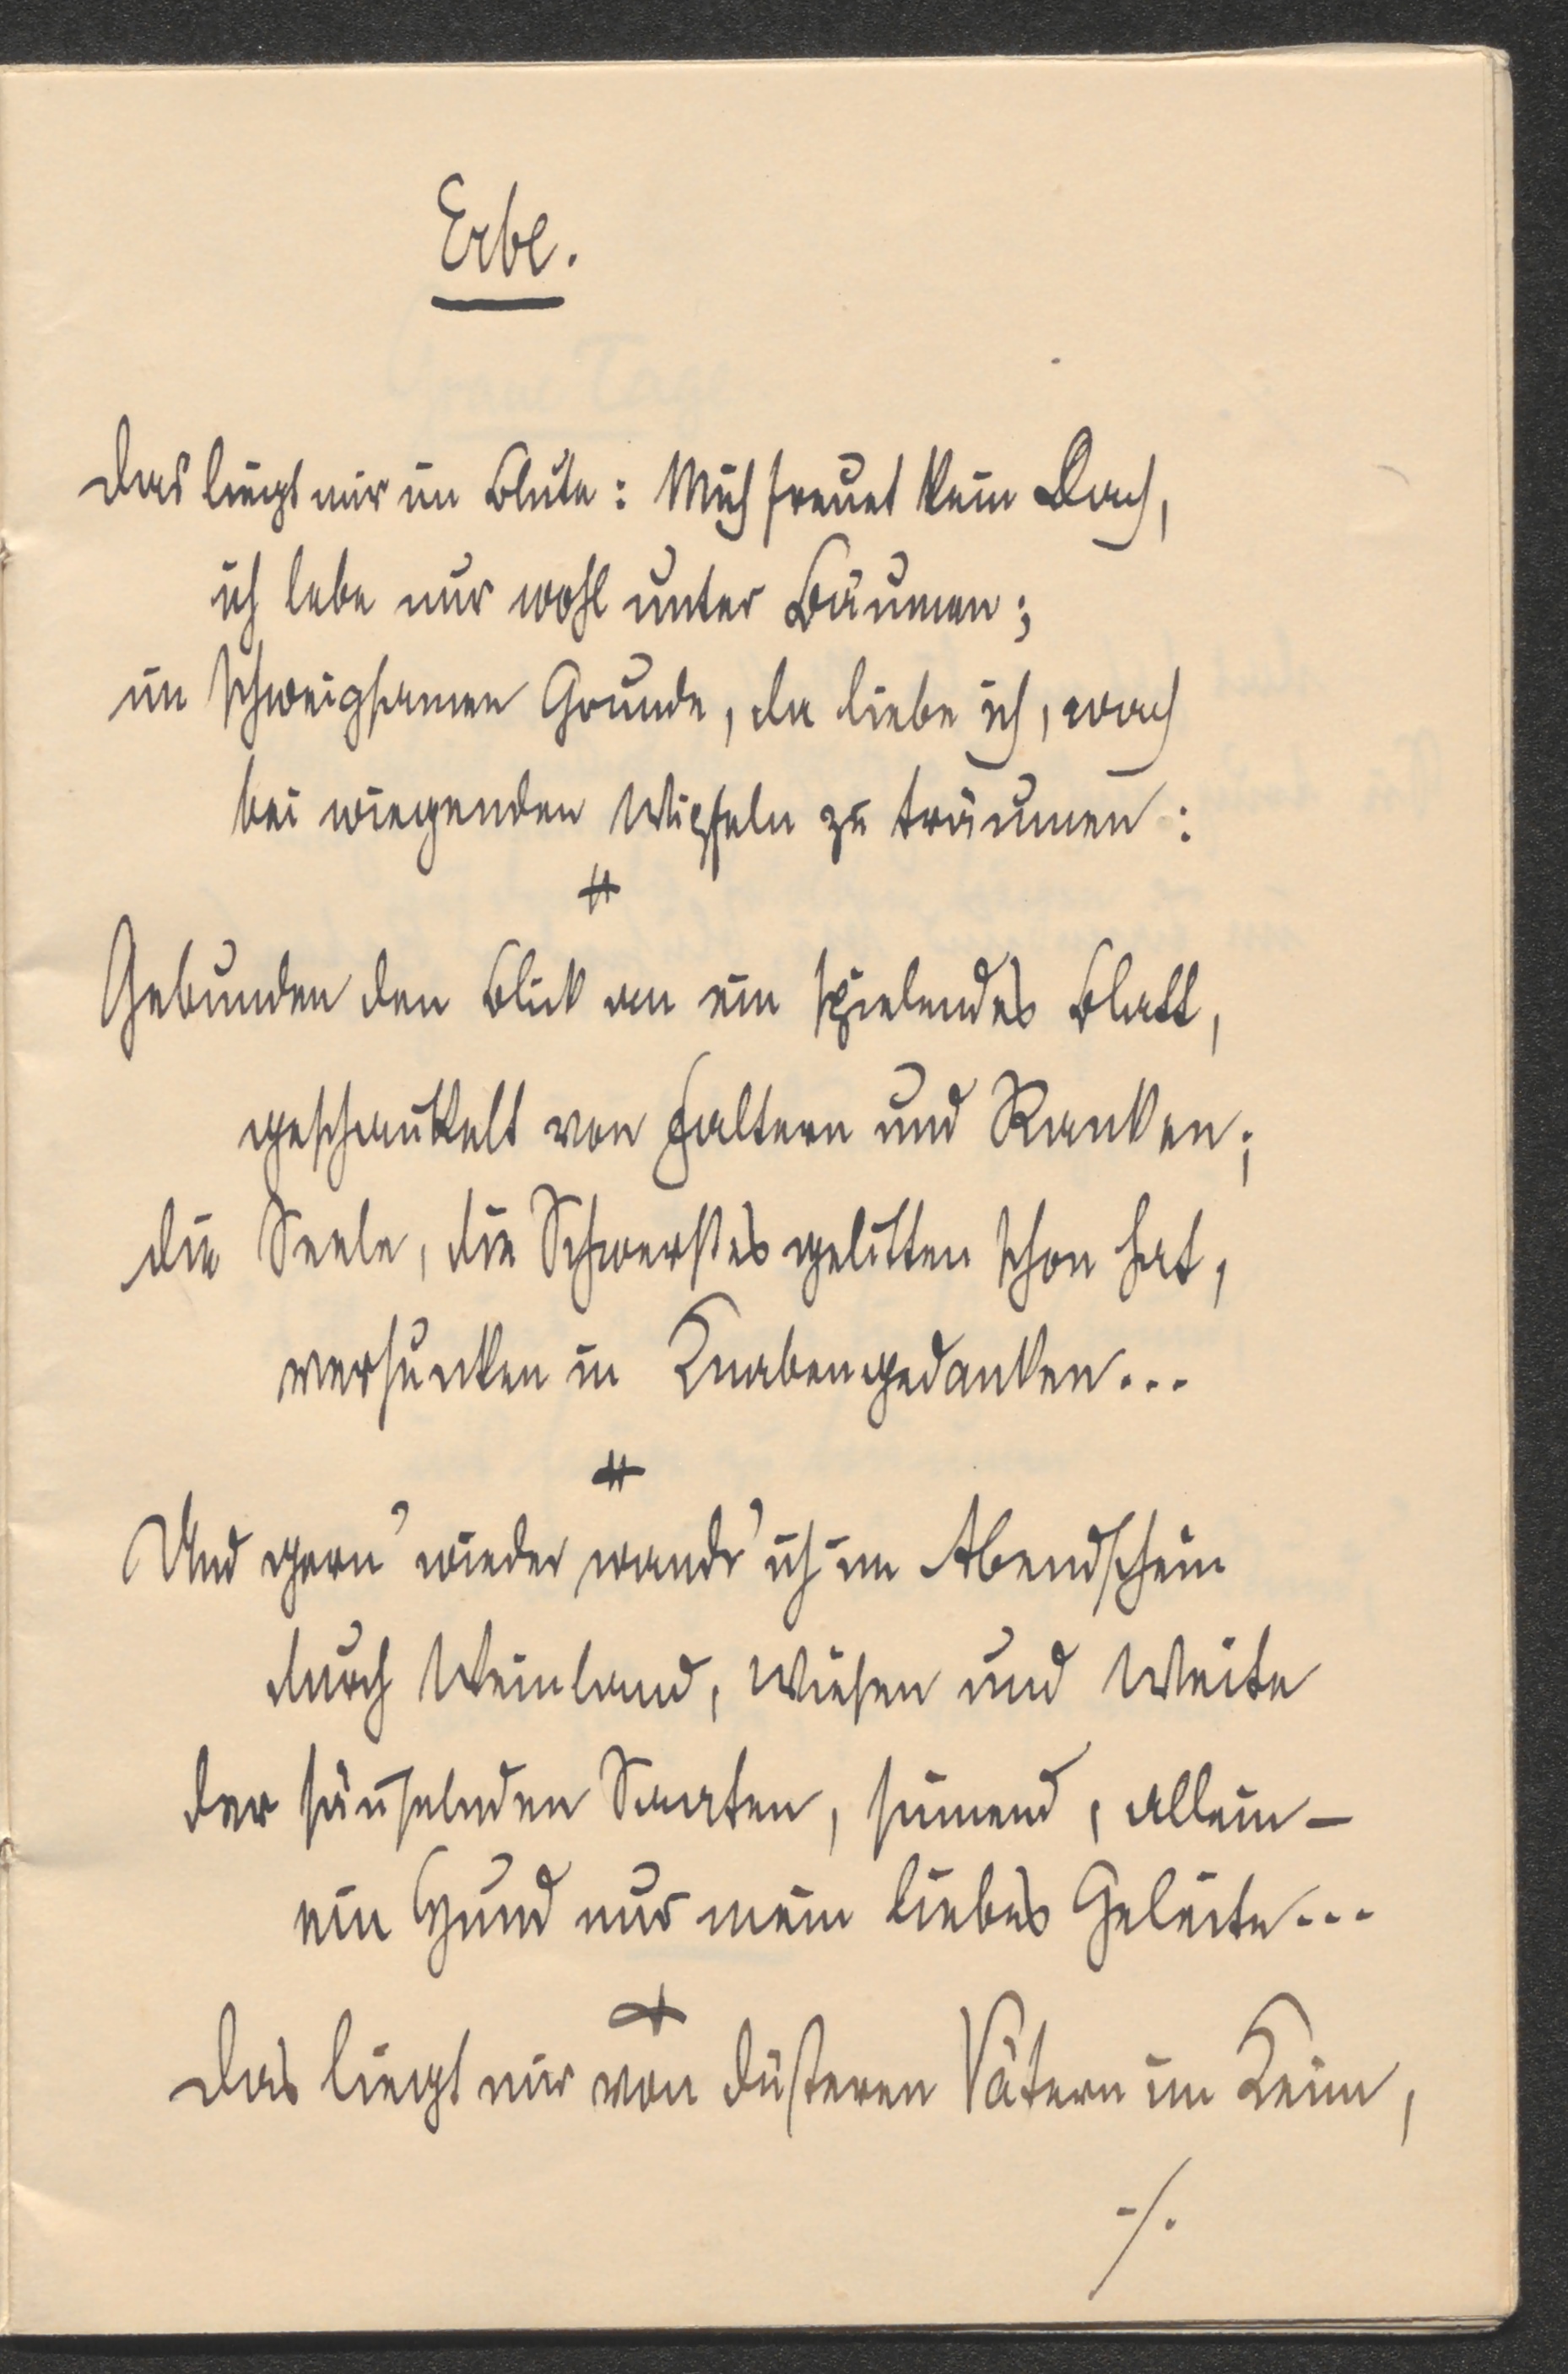 Erbe.
Das liegt mir im Blute: Mich freuet kein Dach,
ich lebe nur wohl unter Bäumen;
im schweigsamen Grunde, da liebe ich, wach
bei wiegenden Wipfeln zu träumen:
Gebunden den Blick an ein spielendes Blatt,
geschaukelt von Faltern und Ranken;
die Seele, die Schwerstes gelitten schon hat,
versunken in Knabengedanken...
Und gern' wieder wandr' ich im Abendschein
durch Weinland, Wiesen und Weite
der säuselnden Saaten, sinnend, allein –
ein Hund nur mein liebes Geleite...
Das liegt mir von düsteren Vätern im Keim,
-/.